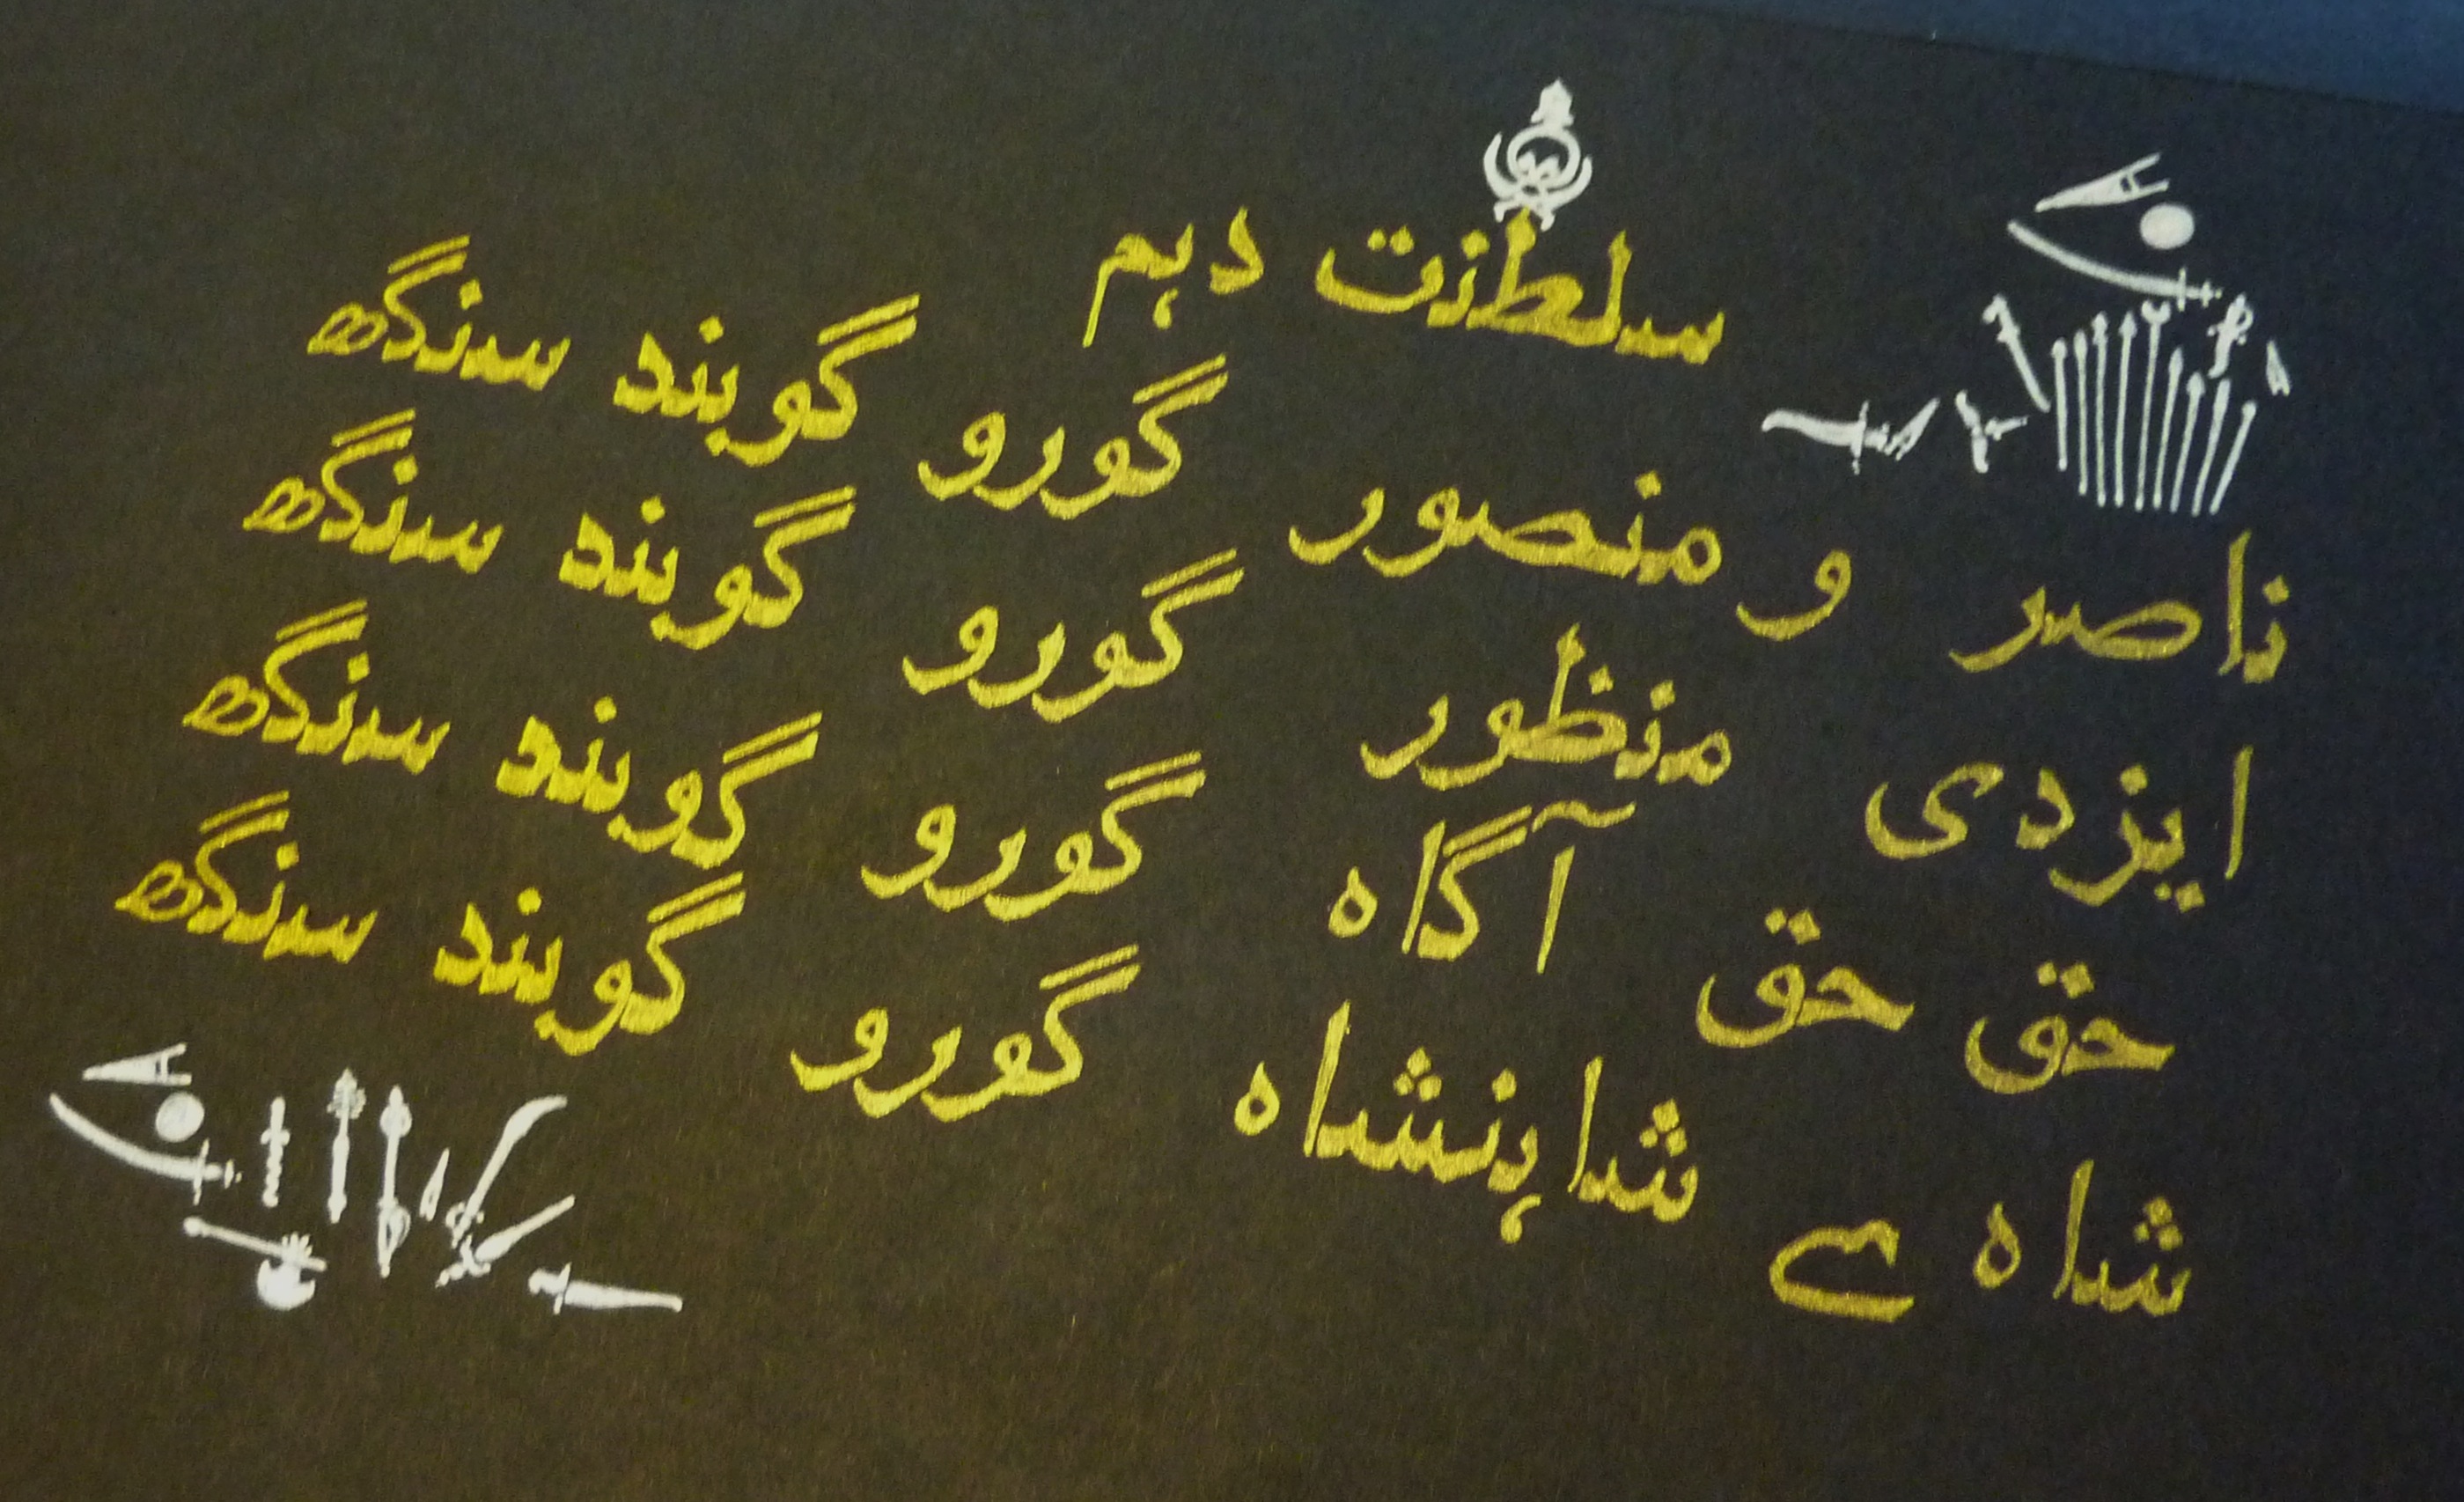 سلطنت دہم
ناصر و منصور گورو گوبند سنگھ
ایزدی منظور گورو گوبند سنگھ
حق حق آگاہ گورو گوبند سنگھ
شاہ ے شاہنشاہ گورو گوبند سنگھ